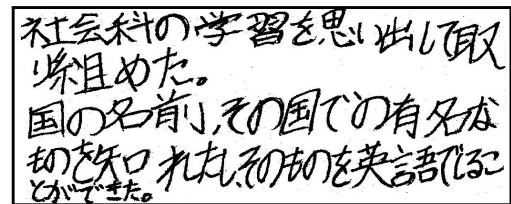 社会科の学習を思い出して取
り組めた。
国の名前、その国での有名な
ものを知れたし、そのものを英語でるこ
とができた。